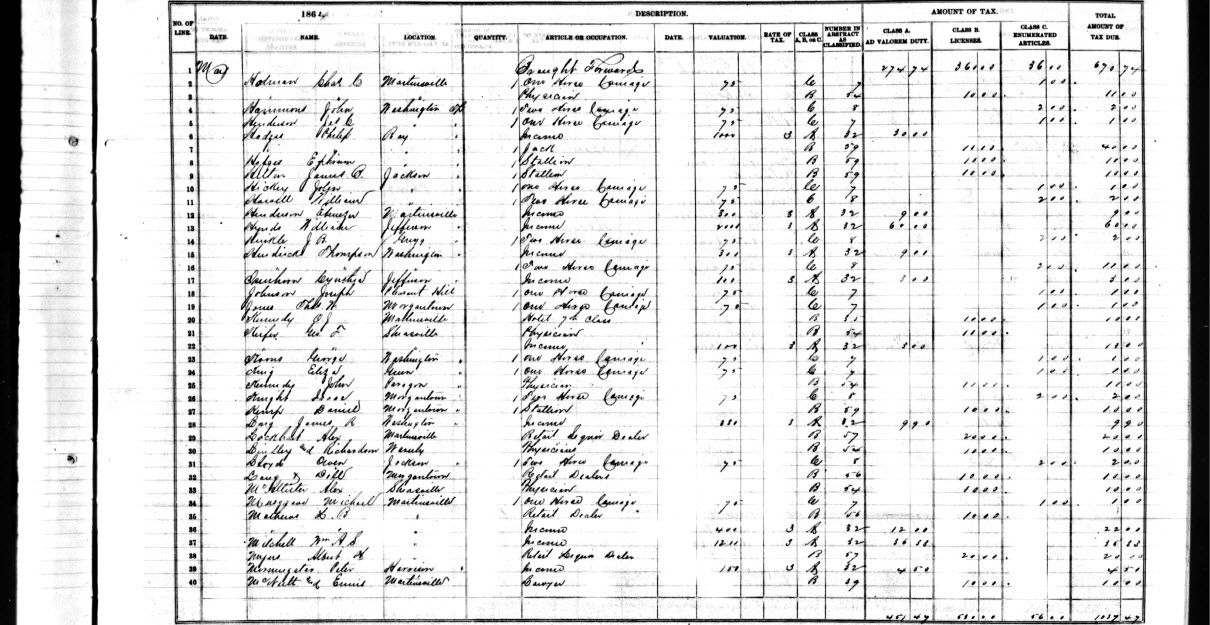 186 4 DESCRIPTION. AMOUNT OF TAX.
NO. OF LINE. DATE. NAME. LOCATION. QUANTITY. ARTICLE OR OCCUPATION. DATE. VALUATION. RATE OF TAX. CLASS A, B, OR C. NUMBER IN ABSTRACT AS CLASSIFIED. CLASS A. AD VALOREM DUTY. CLASS B. LICENSES. CLASS C. ENUMERATED ARTICLES. TOTAL AMOUNT OF TAX DUE.
1 May Brought Forward 274 74 360 00 36 00 670 74
2 Chas C Martinsville 1 One Horse Carriage 75 C 7 1 00
3 Physician B 54 10 00 11 00
4 Hammons John Washington 1 Two Horse Carriage 75 C 8 2 00 2 00
5 Henderson " 1 One Horse Carriage 75 C 7 1 00 1 00
6 Hodges Philip Ray Income 1000 3 A 32 30 00
7 " " 1 Jack B 59 10 00 40 00
8 Hodges Ephraim " 1 Stallion B 59 10 00 10 00
9 James Jackson 1 Stallion B 59 10 00 10 00
10 Hickey John " 1 One Horse Carriage 75 C 7 1 00 1 00
11 William " 1 Two Horse Carriage 75 C 8 2 00 2 00
12 Henderson Ebenezer Martinsville Income 300 3 A 32 9 00 9 00
13 Hynds William Jefferson Income 2000 3 A 32 60 00 60 00
14 Hinkle J B Gregg 1 Two Horse Carriage 75 C 8 2 00 2 00
15 Thompson Washington Income 300 3 A 32 9 00
16 1 Two Horse Carriage 75 C 8 2 00 11 00
17 Cynthia Jefferson Income 100 3 A 32 3 00 3 00
18 Johnson Joseph Pleasant Hill 1 One Horse Carriage 75 C 7 1 00 1 00
19 Jones Thos Morgantown 1 One Horse Carriage 75 C 7 1 00 1 00
20 Kennedy Martinsville Hotel 7th Class B 10 00 10 00
21 Keifer Geo F Shasville Physician B 54 10 00
22 Income 100 3 A 32 3 00 13 00
23 George Washington 1 One Horse Carriage 75 C 7 1 00 1 00
24 King Eliza Green 1 One Horse Carriage 75 C 7 1 00 1 00
25 Kennedy John Paragon Physician B 54 10 00 10 00
26 Knight Jesse Morgantown 1 Two Horse Carriage 75 C 8 2 00 2 00
27 Kemp Daniel Morgantown 1 Stallion B 59 10 00 10 00
28 James R Washington Income 330 3 A 32 9 90 9 90
29 Lockhart Alex Martinsville Retail Liquor Dealer B 57 20 00 20 00
30 and Richardson Waverly Physicians B 54 10 00 10 00
31 Lloyd Owen Jackson 1 Two Horse Carriage 75 C 8 2 00 2 00
32 Morgantown Retail Dealers B 56 10 00 10 00
33 Alex Shasville Physician B 54 10 00 10 00
34 Michael Martinsville 1 One Horse Carriage 75 C 7 1 00 1 00
35 Mathews L B " Retail Dealer B 56 10 00
36 " " Income 400 3 A 32 12 00 22 00
37 Mitchell Wm A S " Income 3 A 32
38 Albert Retail Liquor Dealer B 57 20 00 20 00
39 Peter Harrison Income 150 3 A 32 4 50 4 50
40 and Ennis Martinsville Lawyer B 39 10 00 10 00
451 47 530 00 56 00 1037 47